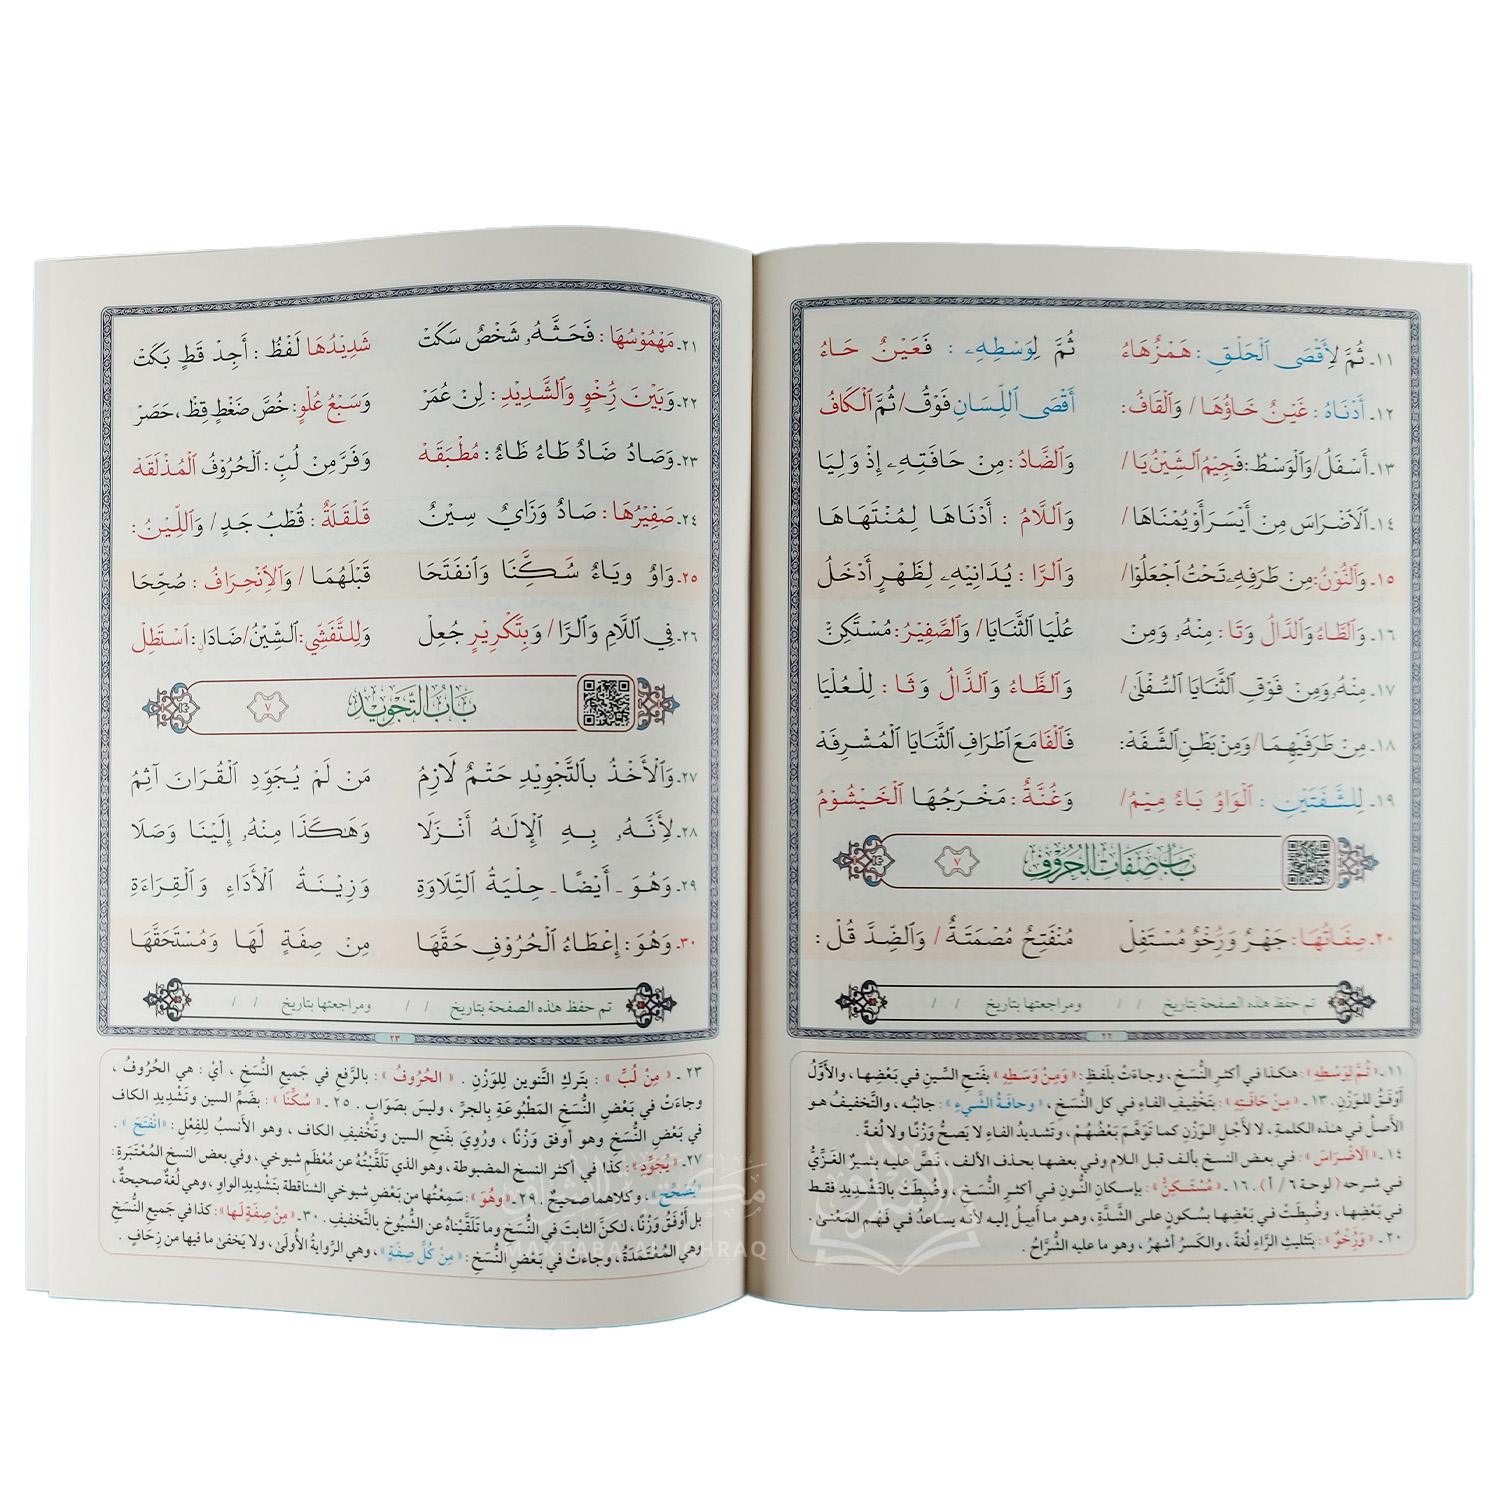 ١١ـ ثُمَّ لِأَقْصَى ٱلْحَلْقِ : هَمْزٌ هَاءُ ثُمَّ لِوَسْطِهِۦ : فَعَيْنٌ حَاءُ
١٢ـ أَدْنَاهُ : غَيْنٌ خَاؤُهَا / وَٱلْقَافُ: أَقْصَى ٱللِّسَانِ فَوْقُ / ثُمَّ ٱلْكَافُ
١٣ـ أَسْفَلُ / وَٱلْوَسْطُ: فَجِيمُ ٱلشِّينُ يَا / وَٱلضَّادُ: مِنْ حَافَتِهِۦ إِذْ وَلِيَا
١٤ـ ٱلَاضْرَاسَ مِنْ أَيْسَرَ أَوْ يُمْنَاهَا / وَٱللَّامُ : أَدْنَاهَا لِمُنْتَهَاهَا
١٥ـ وَٱلنُّوْنُ: مِنْ طَرَفِهِۦ تَحْتُ ٱجْعَلُوْا / وَٱلرَّا : يُدَانِيْهِۦ لِظَهْرٍ أَدْخَلُ
١٦ـ وَٱلطَّاءُ وَٱلدَّالُ وَتَا : مِنْهُۥ وَمِنْ عُلْيَا ٱلثَّنَايَا / وَٱلصَّفِيْرُ: مُسْتَكِنّْ
١٧ـ مِنْهُۥ وَمِنْ فَوْقِ ٱلثَّنَايَا ٱلسُّفْلَى / وَٱلظَّاءُ وَٱلذَّالُ وَثَا : لِلْعُلْيَا
١٨ـ مِنْ طَرَفَيْهِمَا / وَمِنْ بَطْنِ ٱلشَّفَهْ: فَٱلْفَا مَعَ ٱطْرَافِ ٱلثَّنَايَا ٱلْمُشْرِفَهْ
١٩ـ لِلشَّفَتَيْنِ : ٱلْوَاوُ بَاءٌ مِيْمُ / وَغُنَّةٌ : مَخْرَجُهَا ٱلْخَيْشُوْمُ
بَابُ صِفَاتِ الحُرُوْفِ ٧
٢٠ـ صِفَاتُهَا: جَهْرٌ وَرُِخْوٌ مُسْتَفِلْ مُنْفَتِحٌ مُصْمَتَةٌ / وَٱلضِّدَّ قُلْ :
تم حفظ هذه الصفحة بتاريخ / / ومراجعتها بتاريخ / /
٢٢
١١ـ « ثُمَّ لِوَسْطِهِ » : هكذا في أكثرِ النُّسَخِ ، وجاءَتْ بلَفظِ: « وَمِنْ وَسَطِهِ » بفَتحِ السِّينِ في بَعْضِها ، والأَوَّلُ
أَوْفَقُ للوَزْنِ . ١٣ـ « مِنْ حَافَتِهِ » : بتَخْفِيفِ الفاءِ في كلِّ النُّسَخِ ، وحافَةُ الشَّيءِ : جانبُه ، والتَّخفيفُ هو
الأَصلُ في هذه الكلمةِ، لا لأَجْلِ الوَزْنِ كما تَوَهَّمَ بَعْضُهُمْ ، وتَشديدُ الفاءِ لا يَصحُّ وَزْنًا ولا لُغَةً .
١٤ـ « الَاضْرَاسَ » : في بعض النسخ بألف قبل اللام وفي بعضها بحذف الألف، نَصَّ عليه بشيرٌ الغَزِّيُّ
في شرحه ( لوحة ٦ / أ ) . ١٦ـ « مُسْتَكِنّْ » : بإسكانِ النُّونِ في أكثرِ النُّسَخِ ، وضُبِطَتْ بالتَّشْدِيدِ فقط
في بَعْضِها ، وضُبِطَتْ في بَعْضِها بسُكونٍ على الشَّدَّةِ ، وهو ما أَمِيلُ إليه لأنه يساعدُ في فَهمِ المَعْنى .
٢٠ـ « وَرُِخْوٌ » : بتَثليثِ الرَّاءِ لُغَةً ، والكَسرُ أشهَرُ ، وهو ما عليه الشُّرَّاحُ .
٢١ـ مَهْمُوْسُهَا : فَحَثَّهُۥ شَخْصٌ سَكَتْ شَدِيْدُهَا لَفْظُ : أَجِدْ قَطٍ بَكَتْ
٢٢ـ وَبَيْنَ رُِخْوٍ وَٱلشَّدِيْدِ : لِنْ عُمَرْ وَسَبْعُ عُلْوٍ: خُصَّ ضَغْطٍ قِظْ ، حَصَرْ
٢٣ـ وَصَادُ ضَادٌ طَاءُ ظَاءٌ : مُطْبَقَهْ وَفَرَّ مِنْ لُبِّ : ٱلْحُرُوْفُ ٱلْمُذْلَقَهْ
٢٤ـ صَفِيْرُهَا : صَادٌ وَزَايٌ سِيْنُ قَلْقَلَةٌ : قُطْبُ جَدٍ / وَٱللِّيْنُ :
٢٥ـ وَاوٌ وَيَاءٌ سُكِّنَا وَٱنْفَتَحَا قَبْلَهُمَا / وَٱلِٱنْحِرَافُ : صُحِّحَا
٢٦ـ فِي ٱللَّامِ وَٱلرَّا / وَبِتَكْرِيْرٍ جُعِلْ وَلِلتَّفَشِّي: ٱلشِّيْنُ / ضَادًا: ٱسْتَطِلْ
بَابُ التَّجْوِيْدِ ٧
٢٧ـ وَٱلْأَخْذُ بِٱلتَّجْوِيْدِ حَتْمٌ لَازِمُ مَنْ لَمْ يُجَوِّدِ ٱلْقُرَانَ آثِمُ
٢٨ـ لِأَنَّهُۥ بِهِ ٱلْإِلَٰهُ أَنْزَلَا وَهَٰكَذَا مِنْهُۥ إِلَيْنَا وَصَلَا
٢٩ـ وَهُوَ ـ أَيْضًا ـ حِلْيَةُ ٱلتِّلَاوَةِ وَزِيْنَةُ ٱلْأَدَاءِ وَٱلْقِرَاءَةِ
٣٠ـ وَهُوَ : إِعْطَاءُ ٱلْحُرُوْفِ حَقَّهَا مِنْ صِفَةٍ لَهَا وَمُسْتَحَقَّهَا
تم حفظ هذه الصفحة بتاريخ / / ومراجعتها بتاريخ / /
٢٣
٢٣ـ « مِنْ لُبِّ » : بتَركِ التَّنوينِ لِلوَزْنِ . « الحُرُوفُ » : بالرَّفعِ في جَميعِ النُّسَخِ ، أيْ : هي الحُرُوفُ ،
وجاءَتْ في بَعْضِ النُّسَخِ المَطْبُوعَةِ بالجرِّ ، وليسَ بصَوَابٍ . ٢٥ـ « سُكِّنَا » : بضَمِّ السين وتَشْدِيدِ الكاف
في بَعْضِ النُّسَخِ وهو أوفق وَزْنًا ، ورُوِيَ بفَتحِ السين وتَخْفيفِ الكاف ، وهو الأَنسبُ لِلفِعْلِ : « انْفَتَحَ » .
٢٧ـ « يُجَوِّدِ » : كذا في أكثر النسخ المضبوطة ، وهو الذي تَلَقَّيْتُهُ عن مُعْظَمِ شيوخي، وفي بعض النسخ المُعْتَبَرَةِ :
« يُصَحِّحِ » ، وكلاهما صحيحٌ . ٢٩ـ « وهُوَ » : سَمِعْتُها من بَعْضِ شيوخي الشناقطة بتَشْدِيدِ الواو ، وهي لُغَةٌ صحيحةٌ ،
بل أَوْفَقُ وَزْنًا ، لكنَّ الثابتَ في النُّسَخِ وما تَلَقَّيْناهُ عن الشُّيُوخِ بالتَّخفيفِ . ٣٠ـ « مِنْ صِفَةٍ لَها » : كذا في جَميعِ النُّسَخِ
وهي المُعْتَمَدَةُ ، وجاءَتْ في بَعْضِ النُّسَخِ : « مِنْ كُلِّ صِفَةٍ » ، وهي الرِّوايةُ الأُولَى ، ولا يَخفىٰ ما فيها من زِحَافٍ .
مكتبة الإشراق
MAKTABA AL ISHRAQ